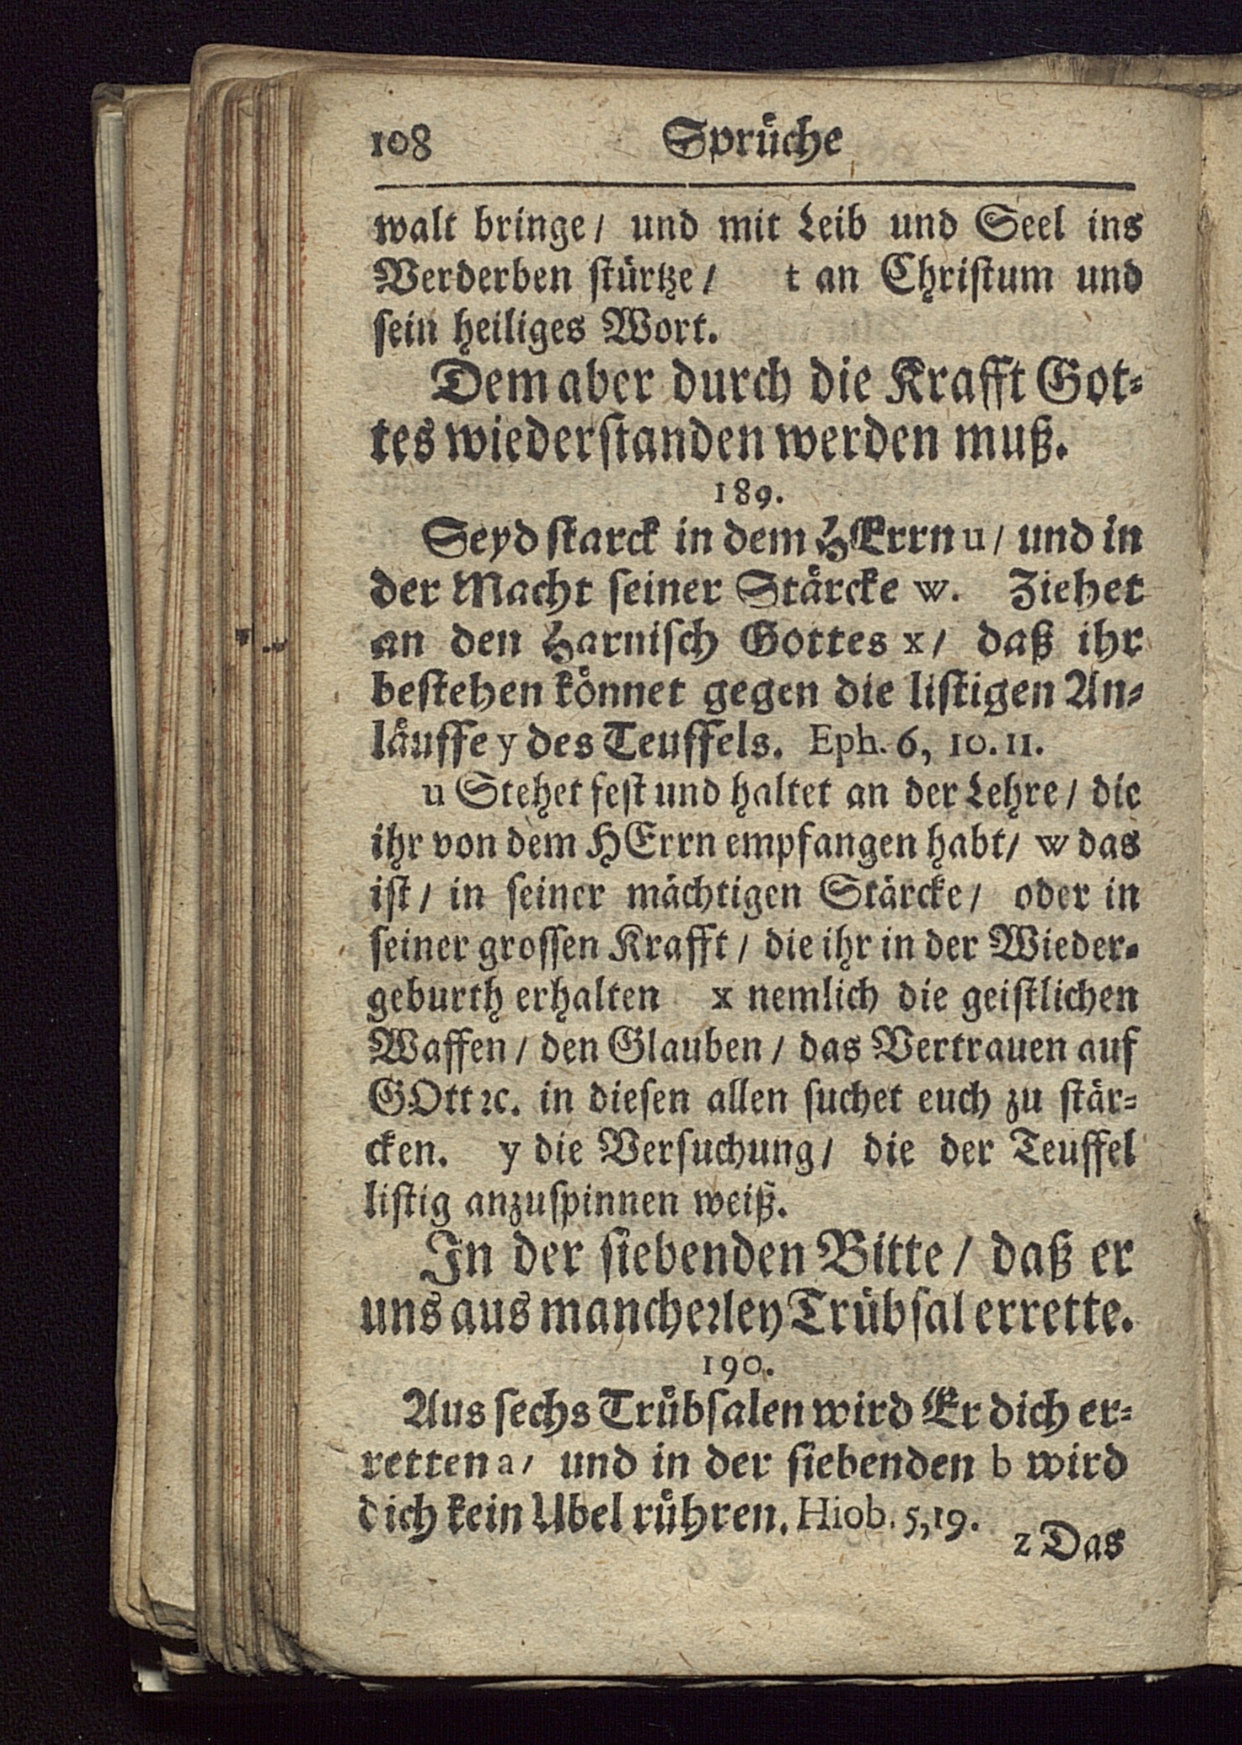 108 Sprüche
walt bringe / und mit Leib und Seel ins
Verderben stürtze / t an Christum und
sein heiliges Wort.
Dem aber durch die Krafft Got-
tes wiederstanden werden muß.
189.
Seyd starck in dem HErrn u / und in
der Macht seiner Stärcke w. Ziehet
an den Harnisch Gottes x / daß ihr
bestehen könnet gegen die listigen An-
läuffe y des Teuffels. Eph. 6, 10. 11.
u Stehet fest und haltet an der Lehre / die
ihr von dem HErrn empfangen habt / w das
ist / in seiner mächtigen Stärcke / oder in
seiner grossen Krafft / die ihr in der Wieder-
geburth erhalten x nemlich die geistlichen
Waffen / den Glauben / das Vertrauen auf
GOtt ꝛc. in diesen allen suchet euch zu stär-
cken. y die Versuchung / die der Teuffel
listig anzuspinnen weiß.
In der siebenden Bitte / daß er
uns aus mancheꝛley Trübsal errette.
190.
Aus sechs Trübsalen wird Er dich er-
retten a / und in der siebenden b wird
dich kein Ubel rühren. Hiob. 5, 19.
z Das